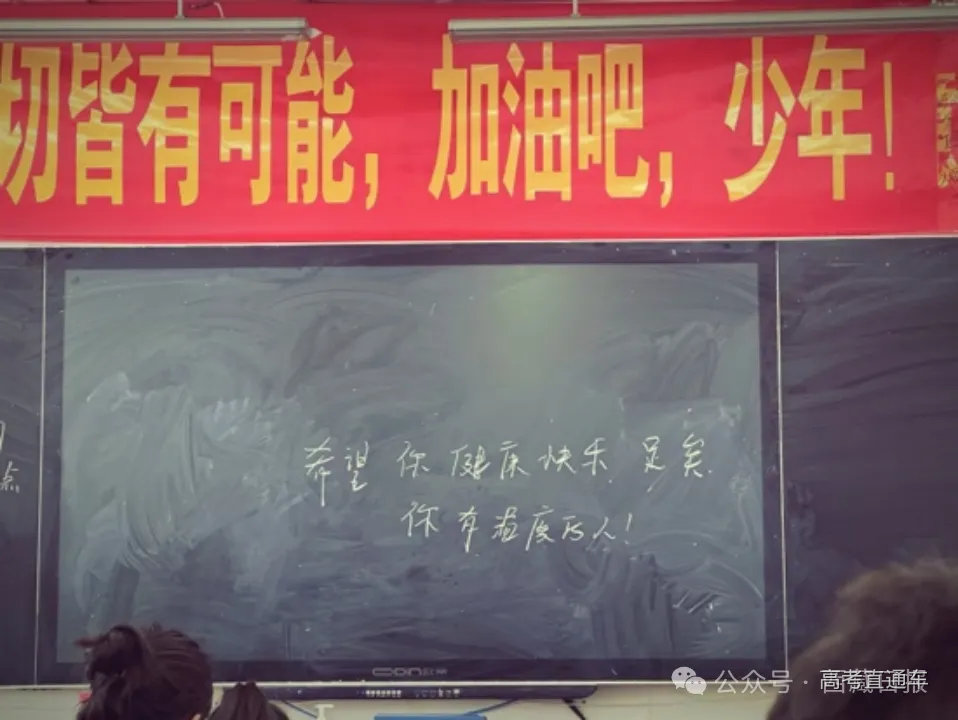 切皆有可能，加油吧，少年！
希望你健康快乐足矣
你有温度的人！
点
公众号·高考直通车